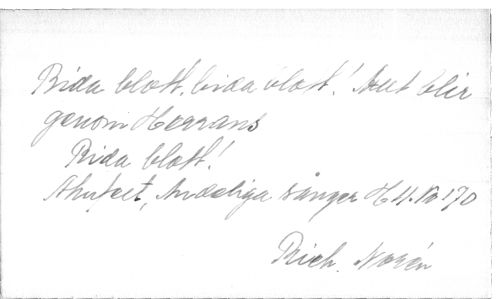 Bida blott, bida blott! Snart blir
genom Herrans
Bida blott!
Ahnfelt, Andeliga sånger H 4. No 170
Rich. Norén